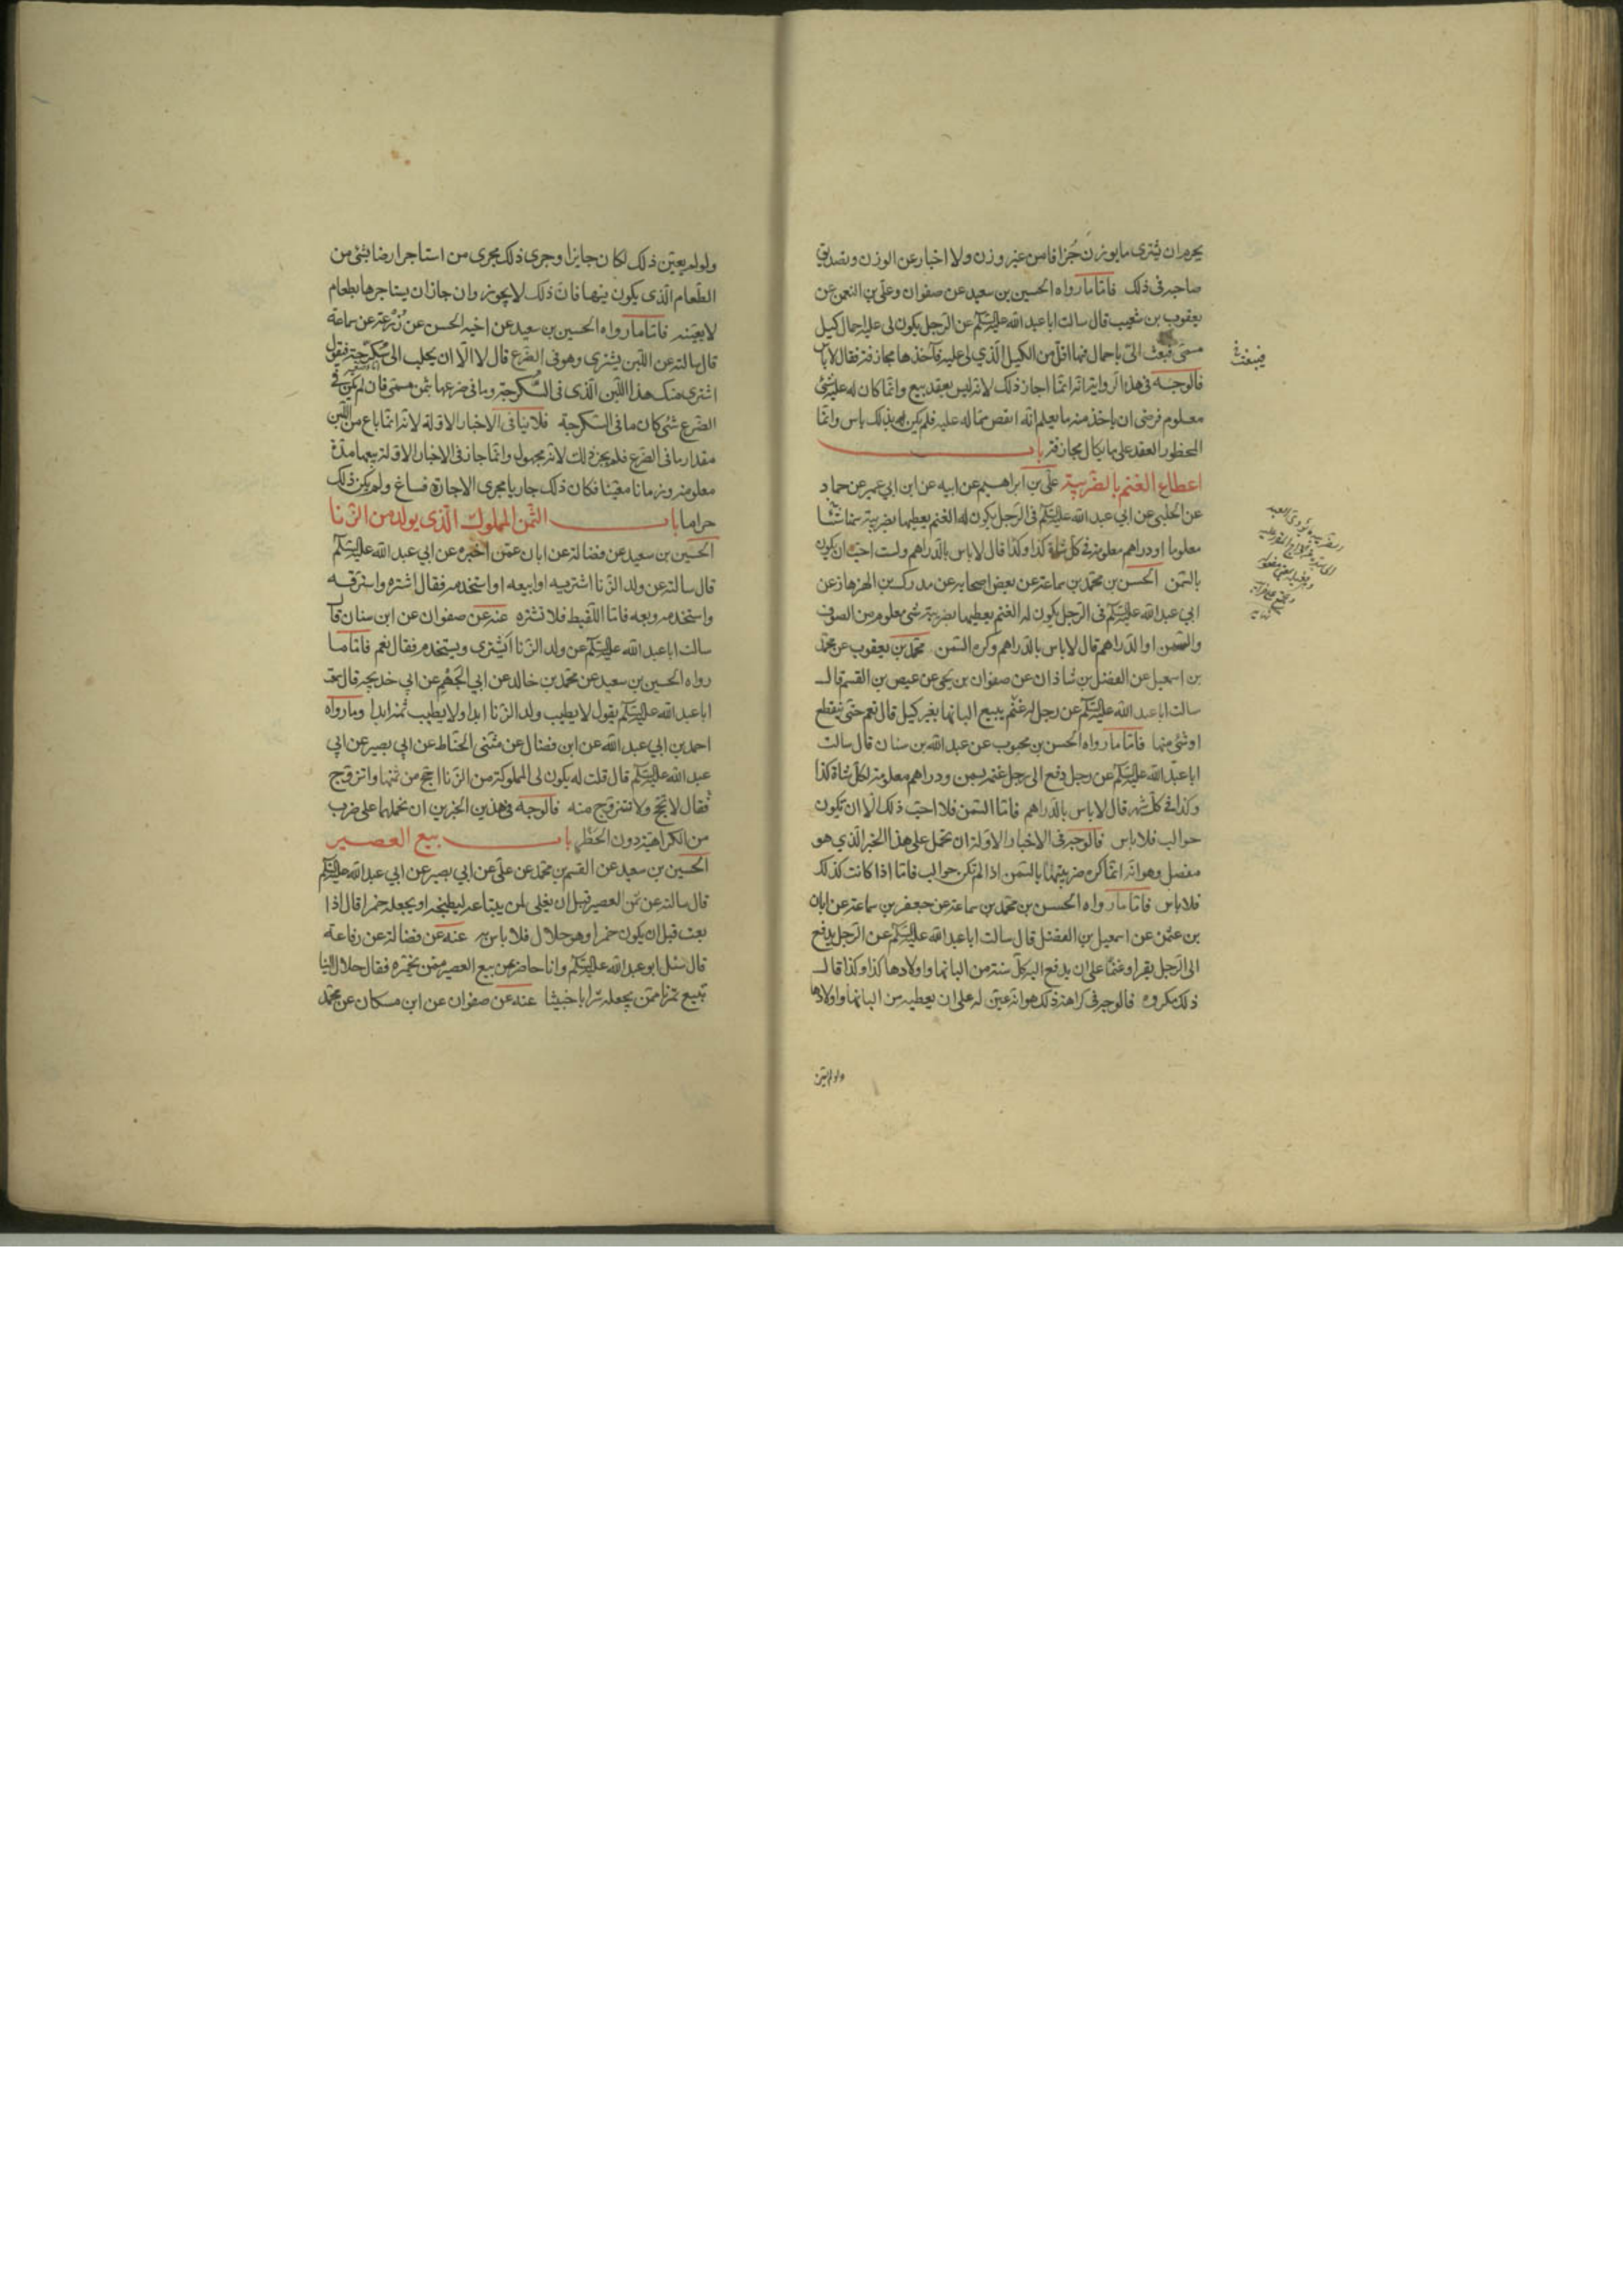 يحرم ان يشترى ما يوزن جُزافا من غير وزن ولا اخبار عن الوزن وتصديق
صاحبه فى ذلك فامّا ما رواه الحسين بن سعيد عن صفوان وعلى بن النعمن عن
يعقوب بن شعيب قال سالت ابا عبد الله عليه السّلم عن الرجل يكون لى عليه احمال كيل
مسمّى فبعث الىّ باحمال فيها اقلّ من الكيل الّذي لى عليه فآخذها مجازفة فقال لا باس
فالوجه فى هذا الرواية انه انّما اجاز ذلك لانه ليس بعقد بيع وانّما كان له عليه شئ
معلوم فرضى ان ياخذ منه ما يعلم انّه انقص ممّا له عليه فلم يكن به بذلك باس وانّما
المحظور العقد على ما يكال مجازفة باب
اعطاء الغنم بالضريبة علىّ بن ابراهيم عن ابيه عن ابن ابي عمير عن حماد
عن الحلبى عن ابي عبد الله عليه السّلم فى الرجل يكون له الغنم يعطيها بضريبة سمنا شيئا
معلوما او دراهم معلومة فى كلّ شاة كذا وكذا قال لا باس بالدراهم ولست احبّ ان يكون
بالسّمن الحسن بن محمّد بن سماعة عن بعض اصحابه عن مدرك بن الهزهاز عن
ابي عبد الله عليه السّلم فى الرّجل يكون له الغنم يعطيها بضريبة شئ معلوم من الصوف
والسّمن او الدّراهم قال لا باس بالدّراهم وكره السّمن محمّد بن يعقوب عن محمّد
بن اسمعيل عن الفضل بن شاذان عن صفوان بن يحيى عن عيص بن القسم قال
سالت ابا عبد الله عليه السّلم عن رجل له غنم يبيع البانها بغير كيل قال نعم حتى ينقطع
او شئ منها فامّا ما رواه الحسن بن محبوب عن عبد الله بن سنان قال سالت
ابا عبد الله عليه السّلم عن رجل دفع الى رجل غنمه بسمن ودراهم معلومة لكلّ شاة كذا
وكذا فى كلّ شهر قال لا باس بالدّراهم فامّا السّمن فلا احبّ ذلك الّا ان تكون
حوالب فلا باس فالوجه فى الاخبار الاولة ان تحمل على هذا الخبر الّذي هو
مفصل وهو انّه انّما كره ضريبتها بالسّمن اذا لم تكن حوالب فامّا اذا كانت كذلك
فلا باس فامّا ما رواه الحسن بن محمّد بن سماعة عن جعفر بن سماعة عن ابان
بن عثمن عن اسمعيل بن الفضل قال سالت ابا عبد الله عليه السّلم عن الرّجل يدفع
الى الرّجل بقرا وغنمًا على ان يدفع اليه كلّ سنة من البانها واولادها كذا وكذا قال
ذلك مكروه فالوجه فى كراهة ذلك هو انه عيّن له على ان يعطيه من البانها واولادها
ولو لم يعيّن
فيبعث
ولو لم يعيّن ذلك لكان جايزا وجرى ذلك مجرى من استاجر ارضا بشئ من
الطّعام الّذى يكون منها فانّ ذلك لا يجوز وان جاز ان يستاجرها بطعام
لا بعينه فامّا ما رواه الحسين بن سعيد عن اخيه الحسن عن زُرعة عن سماعة
قال سالته عن اللّبن يشترى وهو فى الضرع قال لا الّا ان يحلب الى سُكرّجة فيقول
اشترى منك هذا اللّبن الّذى فى السّكرجة وما فى ضرعها بثمن مسمّى فان لم يكن فى
الضرع شئ كان ما فى السّكرجة فلا ينافى الاخبار الاوّلة لانّه انّما باع من اللّبن
مقدار ما فى الضرع فلم يجز ذلك لانّه مجهول وانّما جاز فى الاخبار الاوّلة بيعها مدّة
معلومة وزمانا معيّنا فكان ذلك جاريا مجرى الاجارة فساغ ولم يكن ذلك
حراما باب الثّمن المملوك الّذى يولد من الزّنا
الحسين بن سعيد عن فضالة عن ابان عمّن اخبره عن ابي عبد الله عليه السّلم
قال سالته عن ولد الزّنا اشتريه او ابيعه او استخدمه فقال اشتره واسترقّه
واستخدمه وبعه فامّا اللّقيط فلا تشتره عنه عن صفوان عن ابن سنان قال
سالت ابا عبد الله عليه السّلم عن ولد الزّنا أيشترى ويستخدم فقال نعم فامّا ما
رواه الحسين بن سعيد عن محمّد بن خالد عن ابي الجهم عن ابي خديجه قال سمعت
ابا عبد الله عليه السّلم يقول لا يطيب ولد الزّنا ابدا ولا يطيب ثمنه ابدا وما رواه
احمد بن ابي عبد الله عن ابن فضال عن مثنى الحنّاط عن ابي بصير عن ابي
عبد الله عليه السّلم قال قلت له يكون لى المملوكة من الزّنا احجّ من ثمنها واتزوّج
فقال لا تحجّ ولا تتزوّج منه فالوجه فى هذين الخبرين ان نحملهما على ضرب
من الكراهية دون الحظر باب بيع العصير
الحسين بن سعيد عن القسم بن محمّد عن علىّ عن ابي بصير عن ابي عبد الله عليه السّلم
قال سالته عن ثمن العصير قبل ان يغلى لمن يبتاعه ليطبخه او يجعله خمرا قال اذا
بعته قبل ان يكون خمرا وهو حلال فلا باس به عنه عن فضالة عن رفاعة
قال سئل ابو عبد الله عليه السّلم وانا حاضر عن بيع العصير ممّن يخمّره فقال حلال السنا
نبيع تمرنا ممّن يجعله شرابا خبيثا عنه عن صفوان عن ابن مسكان عن محمّد